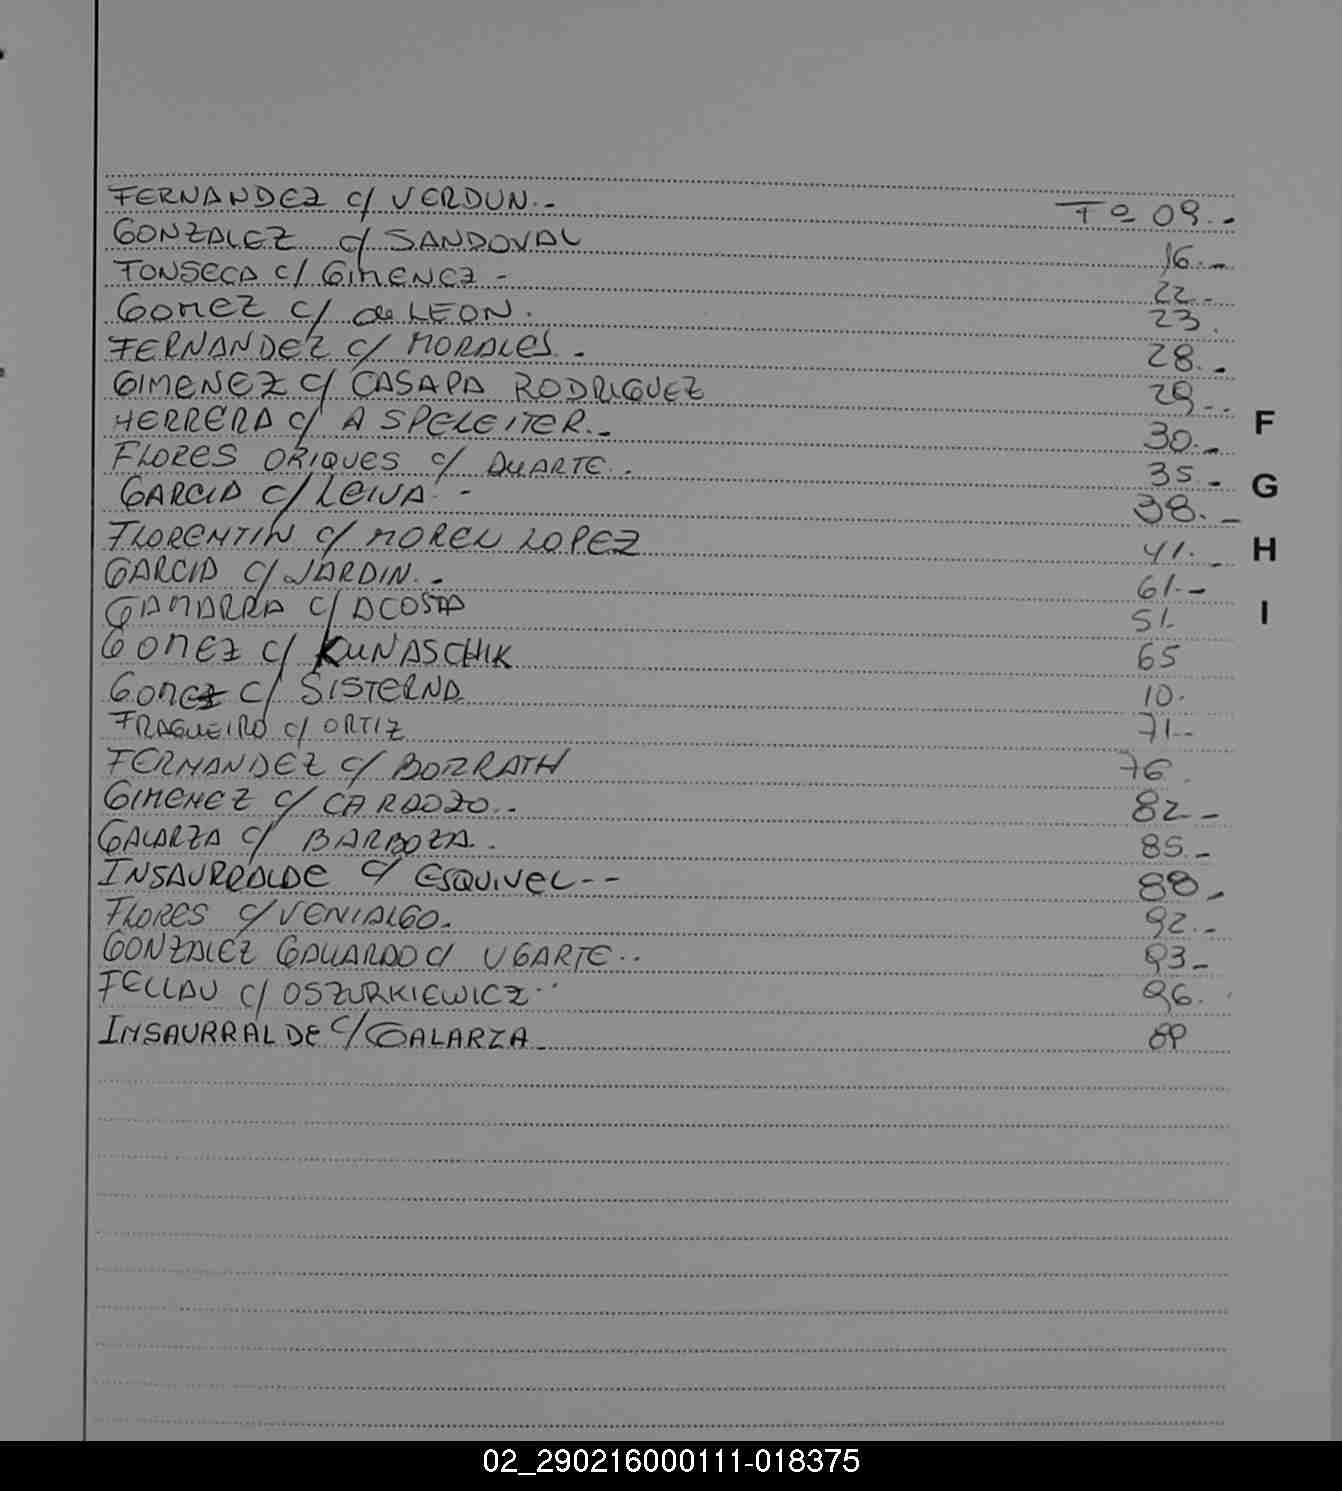 FERNANDEZ c/ VERDUN.- Fº 09.-
GONZALEZ c/ SANDOVAL 16.-
FONSECA c/ GIMENEZ - 22.-
GOMEZ c/ de LEON. 23.
FERNANDEZ c/ MORALES. - 28.-
GIMENEZ c/ CASAPA RODRIGUEZ 29.-
HERRERA c/ A SPELEITER.- 30.-
FLORES ORIQUES c/ DUARTE.. 35.-
GARCIA c/ LEIVA. - 38.-
FLORENTIN c/ MOREL LOPEZ 41.-
GARCIA c/ JARDIN.- 61.-
GAMARRA c/ ACOSTA 51.
GOMEZ c/ KUNASCHIK 65
GOMEZ c/ SISTERNA 10.
FRAGUEIRO c/ ORTIZ 71.-
FERNANDEZ c/ 76.
GIMENEZ c/ CARDOZO.. 82.-
GALARZA c/ BARBOZA. . 85.-
INSAURRALDE c/ ESQUIVEL-- 88.-
FLORES c/ VENIALGO. 92.-
GONZALEZ GALLARDO c/ UGARTE.. 93-
FELLAU c/ OSZURKIEWICZ.. 96.
INSAURRALDE c/ GALARZA 89
F
G
H
I
02_290216000111-018375